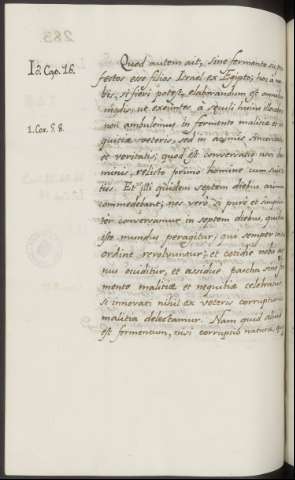 Io. Cap. 16.
1. Cor. 5. 8.
Quod autem ait, sine fermento
festos esse filios Israel ex Egypto; hoc à no
bis, si fieri potest, elaborandum est
modis, ut exeuntes à seculi huius
non ambulemus in fermento malitiæ et
quitiæ veteris, sed in azimis sinceritatis
et veritatis, quod est conversatio
minis, relicto primo homine cum
tus. Et illi quidem septem diebus azima
commedebant; nos verò pure et simplici
tèr conversamur in septem diebus, quibus
iste mundus peragitur; qui semper
ordine revolvuntur; et cotidie nobis
nus occiditur, et assidue pascha sine fer
mento malitiæ et nequitiæ celebratur
si innovati nihil ex veteris corruptionis
malitia delectamur. Nam quid aliud
est fermentum, nisi corruptio naturæ,